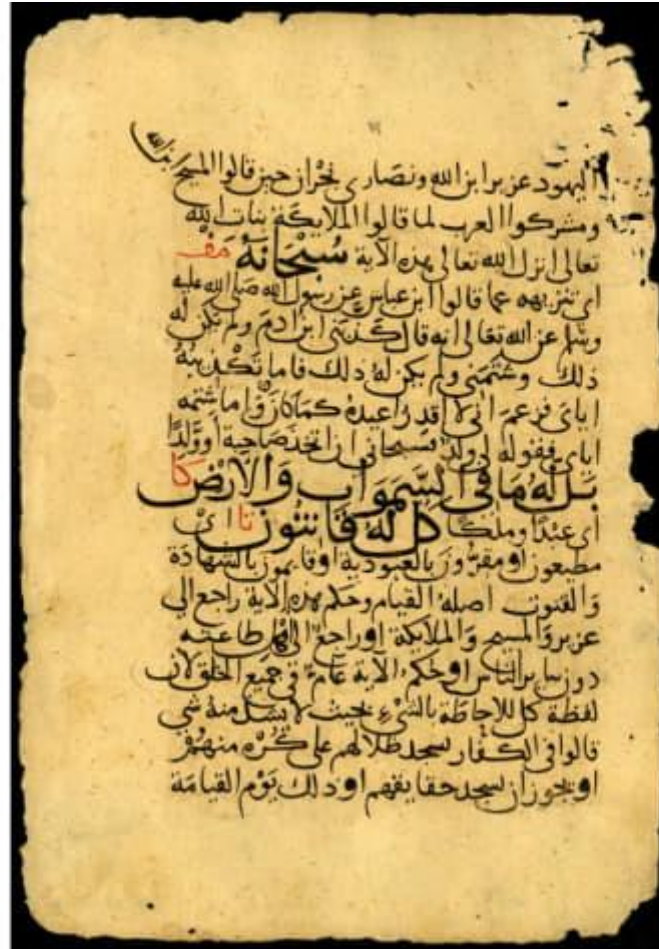 اليهود عزير ابن الله ونصارى نجران حين قالوا المسيح ابن الله
ومشركوا العرب لما قالوا الملايكة بنات الله
تعالى انزل الله تعالى هذه الآية سُبْحَانَهُ مف
اي تنزيهه عما قالوا ابن عباس عن رسول الله صلى الله عليه
وسلم عن الله تعالى انه قال كذبني ابن ادم ولم يكن له
ذلك وشتمني ولم يكن له ذلك فاما تكذيبه
اياى فزعم انى لا اقدر ان اعيده كما كان واما شتمه
اياى فقوله لى ولد فسبحاني ان اتخذ صاحبة او ولدًا
بَلْ لَهُ مَا فِي السَّمَوَاتِ وَالْاَرْضِ كا
اى عبدًا وملكًا كُلٌّ لَهُ قَانِتُونَ تا اى
مطيعون او مقرون بالعبودية او قايمون بالشهادة
والقنوت اصله القيام وحكم هذه الآية راجع الى
عزير والمسيح والملايكة او راجع الى اهل طاعته
دون ساير الناس او حكم الآية عامة في جميع الخلق لان
لفظة كل للاحاطة بالشيء بحيث لا يشذ منه شي
قالوا في الكفار يسجد ظلالهم على كره منهم
او يجوز ان يسجد حقايقهم او ذلك يَوْم القيامة